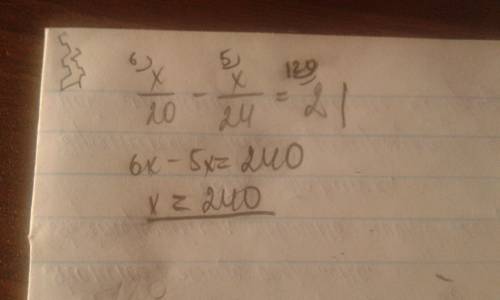 6) 5) 120
x/20 - x/24 = 2 |
6x - 5x = 240
x = 240